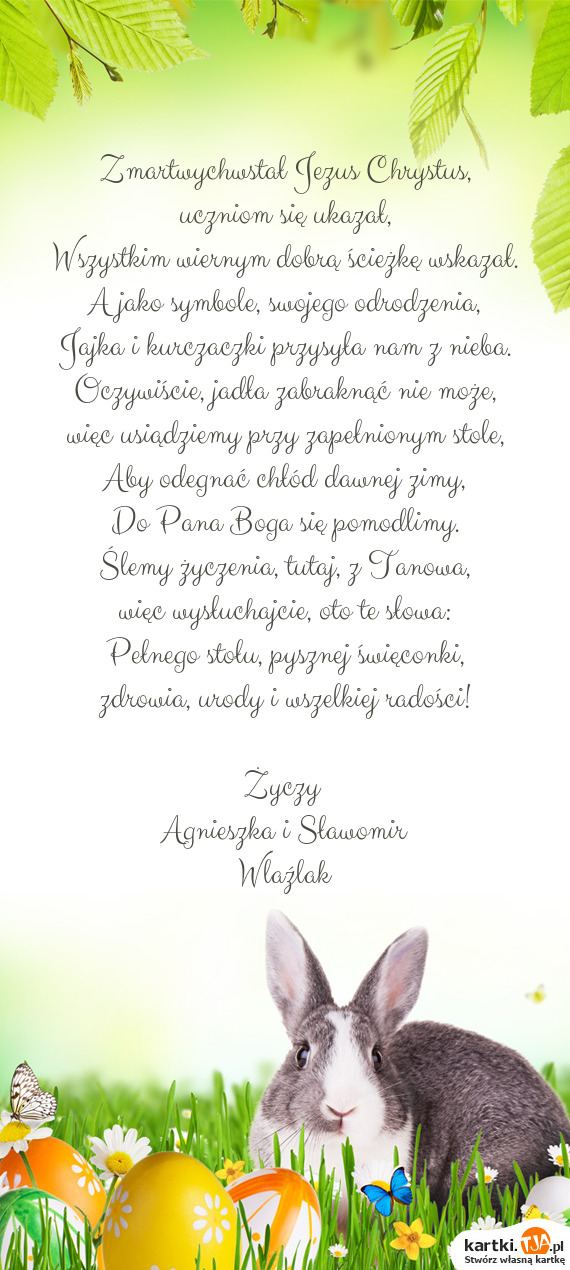 Zmartwychwstał Jezus Chrystus,
uczniom się ukazał,
Wszystkim wiernym dobrą ścieżkę wskazał.
A jako symbole, swojego odrodzenia,
Jajka i kurczaczki przysyła nam z nieba.
Oczywiście, jadła zabraknąć nie może,
więc usiądziemy przy zapełnionym stole,
Aby odegnać chłód dawnej zimy,
Do Pana Boga się pomodlimy.
Ślemy życzenia, tutaj, z Tanowa,
więc wysłuchajcie, oto te słowa:
Pełnego stołu, pysznej święconki,
zdrowia, urody i wszelkiej radości!
Życzy
Agnieszka i Sławomir
Wlaźlak
kartki.TJA.pl
Stwórz własną kartkę